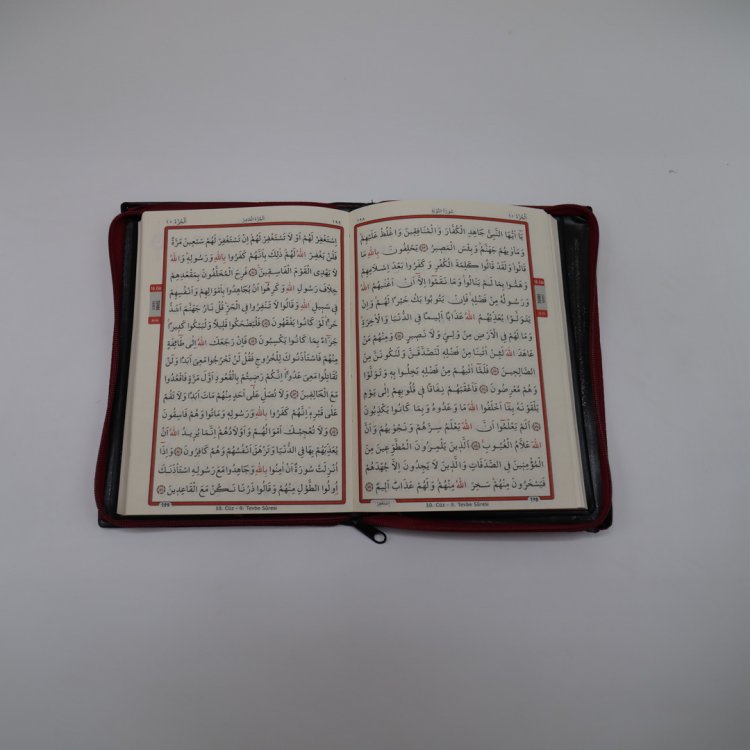 اَلْجُزْءُ ١٠
سُورَةُ التَّوْبَةِ
١٩٨
يَٓا اَيُّهَا النَّبِيُّ جَاهِدِ الْكُفَّارَ وَالْمُنَافِقِينَ وَاغْلُظْ عَلَيْهِمْ
وَمَأْوٰيهُمْ جَهَنَّمُ وَبِئْسَ الْمَصِيرُ ۝ يَحْلِفُونَ بِاللّٰهِ مَا
قَالُوا وَلَقَدْ قَالُوا كَلِمَةَ الْكُفْرِ وَكَفَرُوا بَعْدَ اِسْلَامِهِمْ
وَهَمُّوا بِمَا لَمْ يَنَالُوا وَمَا نَقَمُٓوا اِلَّٓا اَنْ اَغْنٰيهُمُ اللّٰهُ
وَرَسُولُهُ مِنْ فَضْلِهِ فَاِنْ يَتُوبُوا يَكُ خَيْرًا لَهُمْ وَاِنْ
يَتَوَلَّوْا يُعَذِّبْهُمُ اللّٰهُ عَذَابًا اَلِيمًا فِي الدُّنْيَا وَالْاٰخِرَةِ
وَمَا لَهُمْ فِي الْاَرْضِ مِنْ وَلِيٍّ وَلَا نَصِيرٍ ۝ وَمِنْهُمْ مَنْ
عَاهَدَ اللّٰهَ لَئِنْ اٰتٰينَا مِنْ فَضْلِهِ لَنَصَّدَّقَنَّ وَلَنَكُونَنَّ مِنَ
الصَّالِحِينَ ۝ فَلَمَّٓا اٰتٰيهُمْ مِنْ فَضْلِهِ بَخِلُوا بِهِ وَتَوَلَّوْا
وَهُمْ مُعْرِضُونَ ۝ فَاَعْقَبَهُمْ نِفَاقًا فِي قُلُوبِهِمْ اِلٰى يَوْمِ
يَلْقَوْنَهُ بِمَٓا اَخْلَفُوا اللّٰهَ مَا وَعَدُوهُ وَبِمَا كَانُوا يَكْذِبُونَ
۝ اَلَمْ يَعْلَمُٓوا اَنَّ اللّٰهَ يَعْلَمُ سِرَّهُمْ وَنَجْوٰيهُمْ وَاَنَّ
اللّٰهَ عَلَّامُ الْغُيُوبِ ۝ اَلَّذِينَ يَلْمِزُونَ الْمُطَّوِّعِينَ مِنَ
الْمُؤْمِنِينَ فِي الصَّدَقَاتِ وَالَّذِينَ لَا يَجِدُونَ اِلَّا جُهْدَهُمْ
فَيَسْخَرُونَ مِنْهُمْ سَخِرَ اللّٰهُ مِنْهُمْ وَلَهُمْ عَذَابٌ اَلِيمٌ
اِسْتَغْفِرْ
198
10. Cüz - 9. Tevbe Sûresi
١٩٩
اَلْجُزْءُ الْعَاشِرُ
اَلْجُزْءُ ١٠
اِسْتَغْفِرْ لَهُمْ اَوْ لَا تَسْتَغْفِرْ لَهُمْ اِنْ تَسْتَغْفِرْ لَهُمْ سَبْعِينَ مَرَّةً
فَلَنْ يَغْفِرَ اللّٰهُ لَهُمْ ذٰلِكَ بِاَنَّهُمْ كَفَرُوا بِاللّٰهِ وَرَسُولِهِ وَاللّٰهُ
لَا يَهْدِي الْقَوْمَ الْفَاسِقِينَ ۝ فَرِحَ الْمُخَلَّفُونَ بِمَقْعَدِهِمْ
خِلَافَ رَسُولِ اللّٰهِ وَكَرِهُٓوا اَنْ يُجَاهِدُوا بِاَمْوَالِهِمْ وَاَنْفُسِهِمْ
فِي سَبِيلِ اللّٰهِ وَقَالُوا لَا تَنْفِرُوا فِي الْحَرِّ قُلْ نَارُ جَهَنَّمَ اَشَدُّ
حَرًّا لَوْ كَانُوا يَفْقَهُونَ ۝ فَلْيَضْحَكُوا قَلِيلًا وَلْيَبْكُوا كَثِيرًا
جَزَٓاءً بِمَا كَانُوا يَكْسِبُونَ ۝ فَاِنْ رَجَعَكَ اللّٰهُ اِلٰى طَٓائِفَةٍ
مِنْهُمْ فَاسْتَأْذَنُوكَ لِلْخُرُوجِ فَقُلْ لَنْ تَخْرُجُوا مَعِيَ اَبَدًا وَلَنْ
تُقَاتِلُوا مَعِيَ عَدُوًّا اِنَّكُمْ رَضِيتُمْ بِالْقُعُودِ اَوَّلَ مَرَّةٍ فَاقْعُدُوا
مَعَ الْخَالِفِينَ ۝ وَلَا تُصَلِّ عَلٰٓى اَحَدٍ مِنْهُمْ مَاتَ اَبَدًا وَلَا تَقُمْ
عَلٰى قَبْرِهِ اِنَّهُمْ كَفَرُوا بِاللّٰهِ وَرَسُولِهِ وَمَاتُوا وَهُمْ فَاسِقُونَ
۝ وَلَا تُعْجِبْكَ اَمْوَالُهُمْ وَاَوْلَادُهُمْ اِنَّمَا يُرِيدُ اللّٰهُ اَنْ
يُعَذِّبَهُمْ بِهَا فِي الدُّنْيَا وَتَزْهَقَ اَنْفُسُهُمْ وَهُمْ كَافِرُونَ ۝ وَاِذَٓا
اُنْزِلَتْ سُورَةٌ اَنْ اٰمِنُوا بِاللّٰهِ وَجَاهِدُوا مَعَ رَسُولِهِ اسْتَأْذَنَكَ
اُولُوا الطَّوْلِ مِنْهُمْ وَقَالُوا ذَرْنَا نَكُنْ مَعَ الْقَاعِدِينَ ۝
199
10. Cüz - 9. Tevbe Sûresi